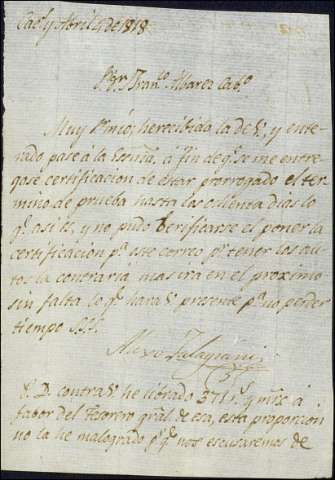 y Abril 4 de 1818
Sr. Dn. Franco. Alvarez
Muy Sr. mio; he recibido la de V. y ente-
rado pasé à la à fin de q.e se me entre-
gase certificacion de estar prorrogado el ter-
mino de prueba hasta los ochenta dias lo
q.e asi es, y no pudo berificarse el poner la
certificacion pr. este correo pr. tener los au-
tos la contraria mas ira en el proximo
sin falta lo q.e hará V. presente pa. no perder
tiempo
P. D. contra V. he librado 371 rs. à
favor del Tesorero gral. esta proporcion
no la he malogrado pr. qe. nos escusaremos de